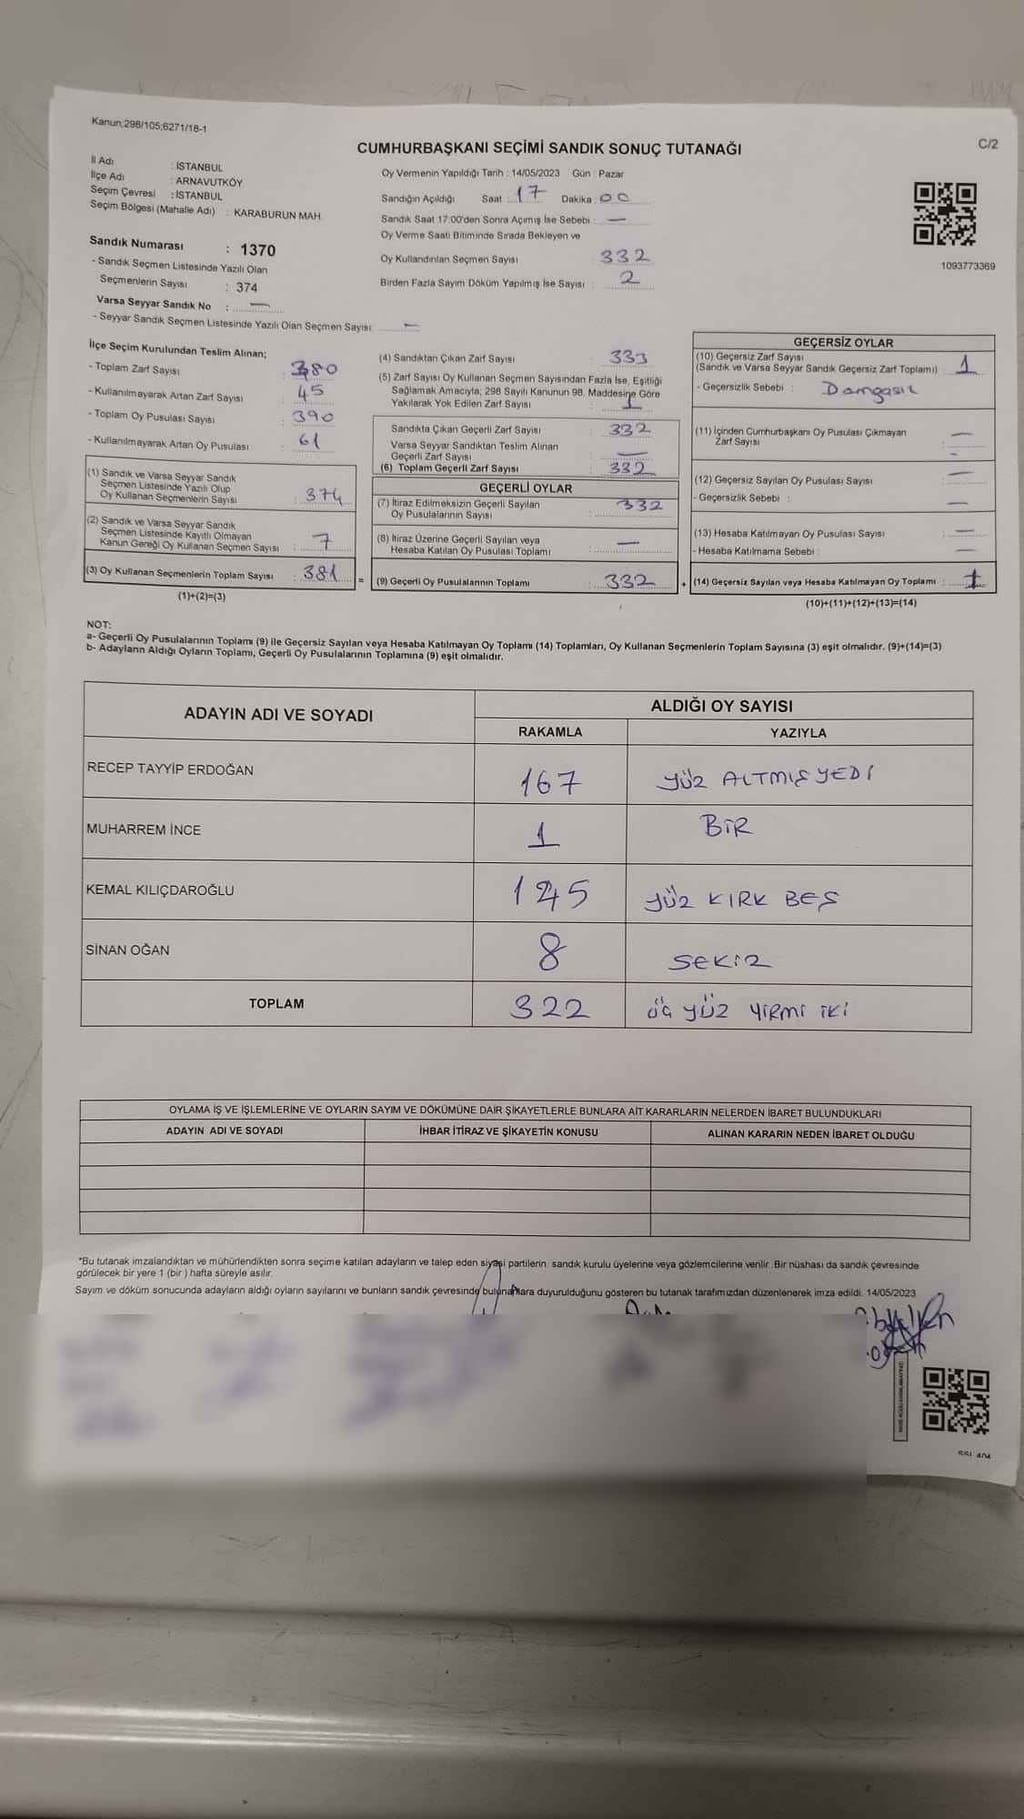 Kanun;298/105;6271/18-1
CUMHURBAŞKANI SEÇİMİ SANDIK SONUÇ TUTANAĞI
C/2
İl Adı : İSTANBUL
İlçe Adı : ARNAVUTKÖY
Seçim Çevresi : İSTANBUL
Seçim Bölgesi (Mahalle Adı) : KARABURUN MAH.
Sandık Numarası : 1370
- Sandık Seçmen Listesinde Yazılı Olan
Seçmenlerin Sayısı : 374
Varsa Seyyar Sandık No : —
- Seyyar Sandık Seçmen Listesinde Yazılı Olan Seçmen Sayısı: —
Oy Vermenin Yapıldığı Tarih : 14/05/2023 Gün : Pazar
Sandığın Açıldığı Saat : 17 Dakika : 00
Sandık Saat 17:00'den Sonra Açımış İse Sebebi : —
Oy Verme Saati Bitiminde Sırada Bekleyen ve
Oy Kullandırılan Seçmen Sayısı 332
Birden Fazla Sayım Döküm Yapılmış İse Sayısı : 2
1093773369
İlçe Seçim Kurulundan Teslim Alınan;
- Toplam Zarf Sayısı : 380
- Kullanılmayarak Artan Zarf Sayısı : 45
- Toplam Oy Pusulası Sayısı : 390
- Kullanılmayarak Artan Oy Pusulası : 61
(1) Sandık ve Varsa Seyyar Sandık
Seçmen Listesinde Yazılı Olup
Oy Kullanan Seçmenlerin Sayısı : 374
(2) Sandık ve Varsa Seyyar Sandık
Seçmen Listesinde Kayıtlı Olmayan
Kanun Gereği Oy Kullanan Seçmen Sayısı : 7
(3) Oy Kullanan Seçmenlerin Toplam Sayısı : 381
(1)+(2)=(3)
=
(4) Sandıktan Çıkan Zarf Sayısı 333
(5) Zarf Sayısı Oy Kullanan Seçmen Sayısından Fazla İse, Eşitliği
Sağlamak Amacıyla, 298 Sayılı Kanunun 98. Maddesine Göre
Yakılarak Yok Edilen Zarf Sayısı : 1
Sandıkta Çıkan Geçerli Zarf Sayısı : 332
Varsa Seyyar Sandıktan Teslim Alınan
Geçerli Zarf Sayısı : —
(6) Toplam Geçerli Zarf Sayısı : 332
GEÇERLİ OYLAR
(7) İtiraz Edilmeksizin Geçerli Sayılan
Oy Pusulalarının Sayısı : 332
(8) İtiraz Üzerine Geçerli Sayılan veya
Hesaba Katılan Oy Pusulası Toplamı : —
(9) Geçerli Oy Pusulalarının Toplamı : 332
+
GEÇERSİZ OYLAR
(10) Geçersiz Zarf Sayısı
(Sandık ve Varsa Seyyar Sandık Geçersiz Zarf Toplamı) : 1
- Geçersizlik Sebebi : Damgasız
(11) İçinden Cumhurbaşkanı Oy Pusulası Çıkmayan
Zarf Sayısı : —
(12) Geçersiz Sayılan Oy Pusulası Sayısı : —
- Geçersizlik Sebebi : —
(13) Hesaba Katılmayan Oy Pusulası Sayısı : —
- Hesaba Katılmama Sebebi : —
(14) Geçersiz Sayılan veya Hesaba Katılmayan Oy Toplamı : 1
(10)+(11)+(12)+(13)=(14)
NOT:
a- Geçerli Oy Pusulalarının Toplamı (9) ile Geçersiz Sayılan veya Hesaba Katılmayan Oy Toplamı (14) Toplamları, Oy Kullanan Seçmenlerin Toplam Sayısına (3) eşit olmalıdır. (9)+(14)=(3)
b- Adayların Aldığı Oyların Toplamı, Geçerli Oy Pusulalarının Toplamına (9) eşit olmalıdır.
ADAYIN ADI VE SOYADI
ALDIĞI OY SAYISI
RAKAMLA YAZIYLA
RECEP TAYYİP ERDOĞAN 167 YÜZ ALTMIŞ YEDİ
MUHARREM İNCE 1 BİR
KEMAL KILIÇDAROĞLU 145 YÜZ KIRK BEŞ
SİNAN OĞAN 8 SEKİZ
TOPLAM 322 ÜÇ YÜZ YİRMİ İKİ
OYLAMA İŞ VE İŞLEMLERİNE VE OYLARIN SAYIM VE DÖKÜMÜNE DAİR ŞİKAYETLERLE BUNLARA AİT KARARLARIN NELERDEN İBARET BULUNDUKLARI
ADAYIN ADI VE SOYADI İHBAR İTİRAZ VE ŞİKAYETİN KONUSU ALINAN KARARIN NEDEN İBARET OLDUĞU
*Bu tutanak imzalandıktan ve mühürlendikten sonra seçime katılan adayların ve talep eden siyasi partilerin sandık kurulu üyelerine veya gözlemcilerine verilir. Bir nüshası da sandık çevresinde
görülecek bir yere 1 (bir ) hafta süreyle asılır.
Sayım ve döküm sonucunda adayların aldığı oyların sayılarını ve bunların sandık çevresinde bulunanlara duyurulduğunu gösteren bu tutanak tarafımızdan düzenlenerek imza edildi. 14/05/2023